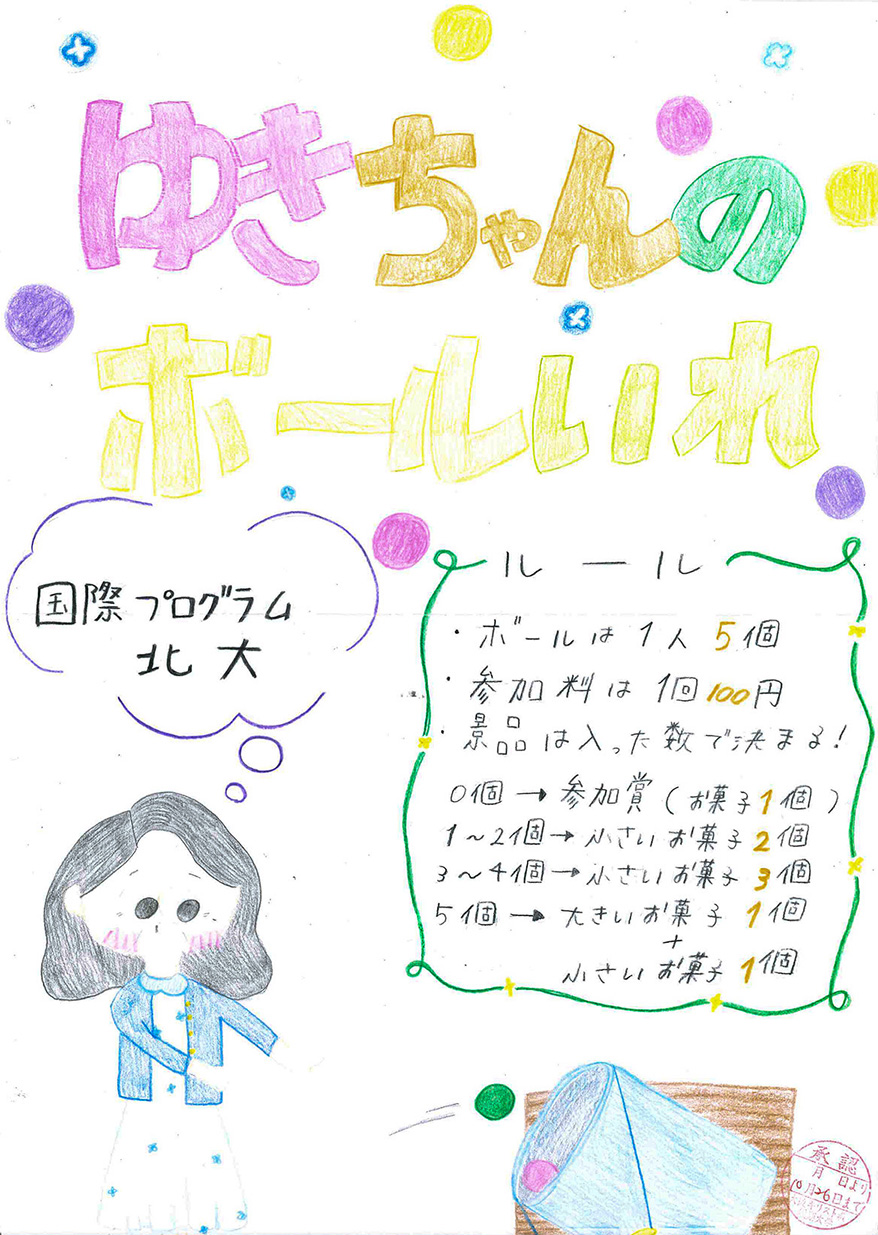 ゆきちゃんの
ボールいれ
国際プログラム
北大
ルール
・ボールは1人5個
・参加料は1回100円
・景品は入った数で決まる!
0個→参加賞(お菓子1個)
1~2個→小さいお菓子2個
3~4個→小さいお菓子3個
5個→大きいお菓子1個
+
小さいお菓子1個
承認
月 日より
10月26日まで